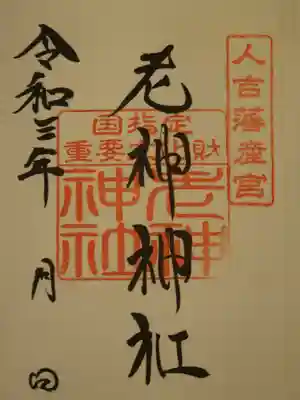 人吉藩産宮
老神神社
国指定
重要文化財
老神
神社
令和三年
月
日